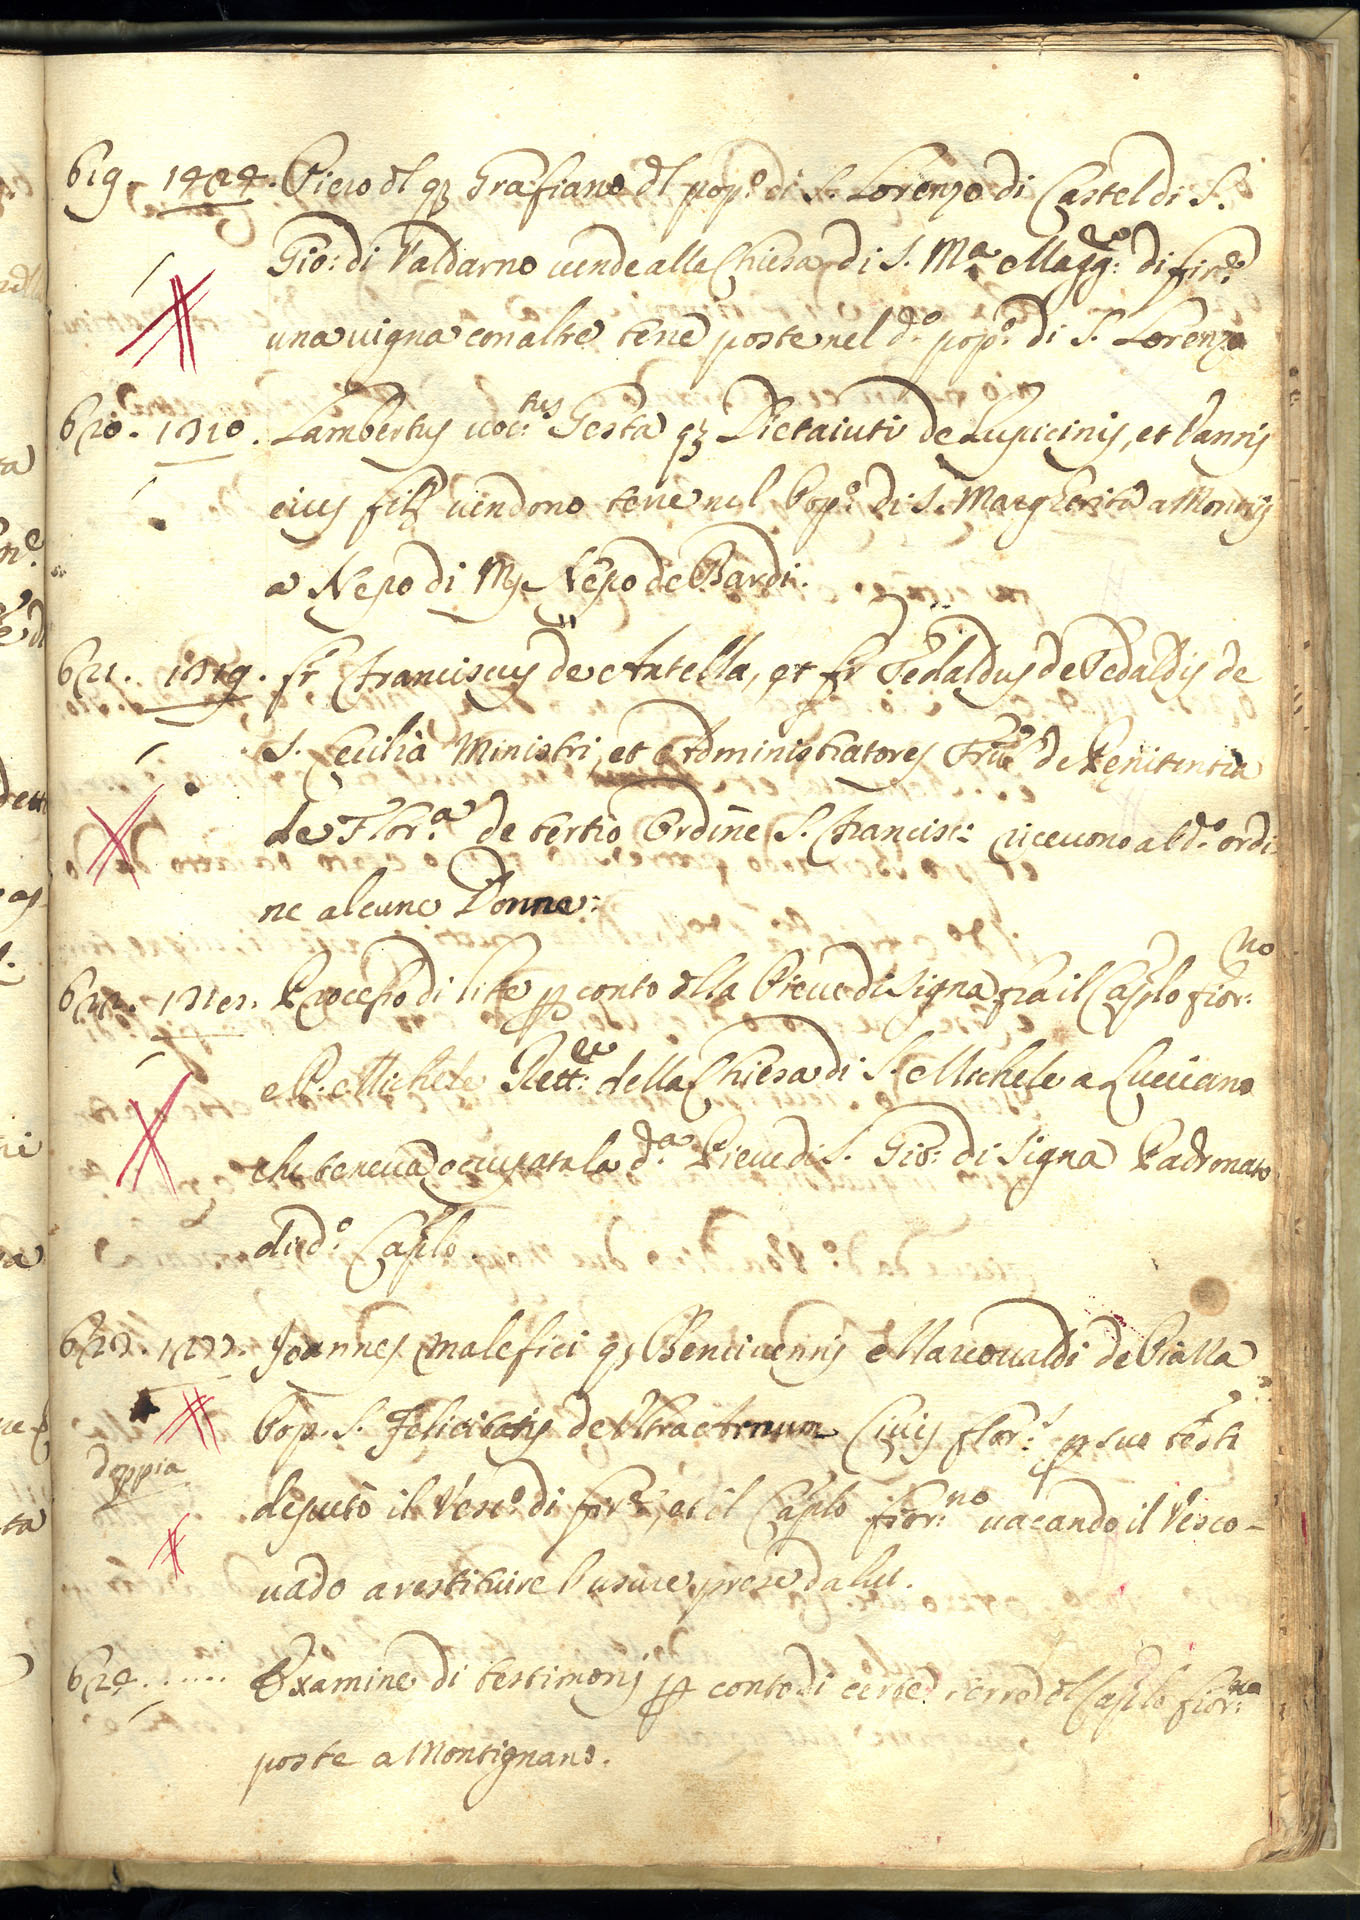 619. 1424. Piero dl qz Graziano dl pop.º di S. Lorenzo di Castel di S.
Gio: di Valdarno vende alla Chiesa di S. M.ª Magg:re di Fir.e
una vigna con altre terre poste nel d.º pop.º di S. Lorenzo
620. 1310. Lambertus voc:tus Testa qz Dietaiuti de Lupicinis, et Vannis
eius fil vendono terre nel Pop.º di S. Margherita a Montici
a Nepo di Mr Nepo de Bardi.
621. 1319. fr Franciscus de Antella, et fr Tedaldus de Tedaldis de
S. Cecilia Ministri, et Administratores de Penitentia
de Flor.ª de tertio Ordine S. Francisci: ricevono al d.º ordi
ne alcune Donne:
622. Processo di lite p conto dlla Pieve di Signa fra il Caplo fior:no
e P. Michele Rett:re della Chiesa di S. Michele a Luciano
che teneva occupata la d.ª Pieve di S. Gio: di Signa Padronato
di d.º Caplo.
623. Joannes Malefici qz Bentivennis Marcovaldi de Vialla
Pop. S. Felicitatis de Ultra Arnum Civis Flor: p suo testo
doppia
deputò il Vesc.º di fir.e, et il Caplo fior:no vacando il Vesco-
vado a restituire l'usure prese da lui.
624. ...... Examine di testimonj p conto di certe terre dl Caplo fior:no
poste a Montignano.